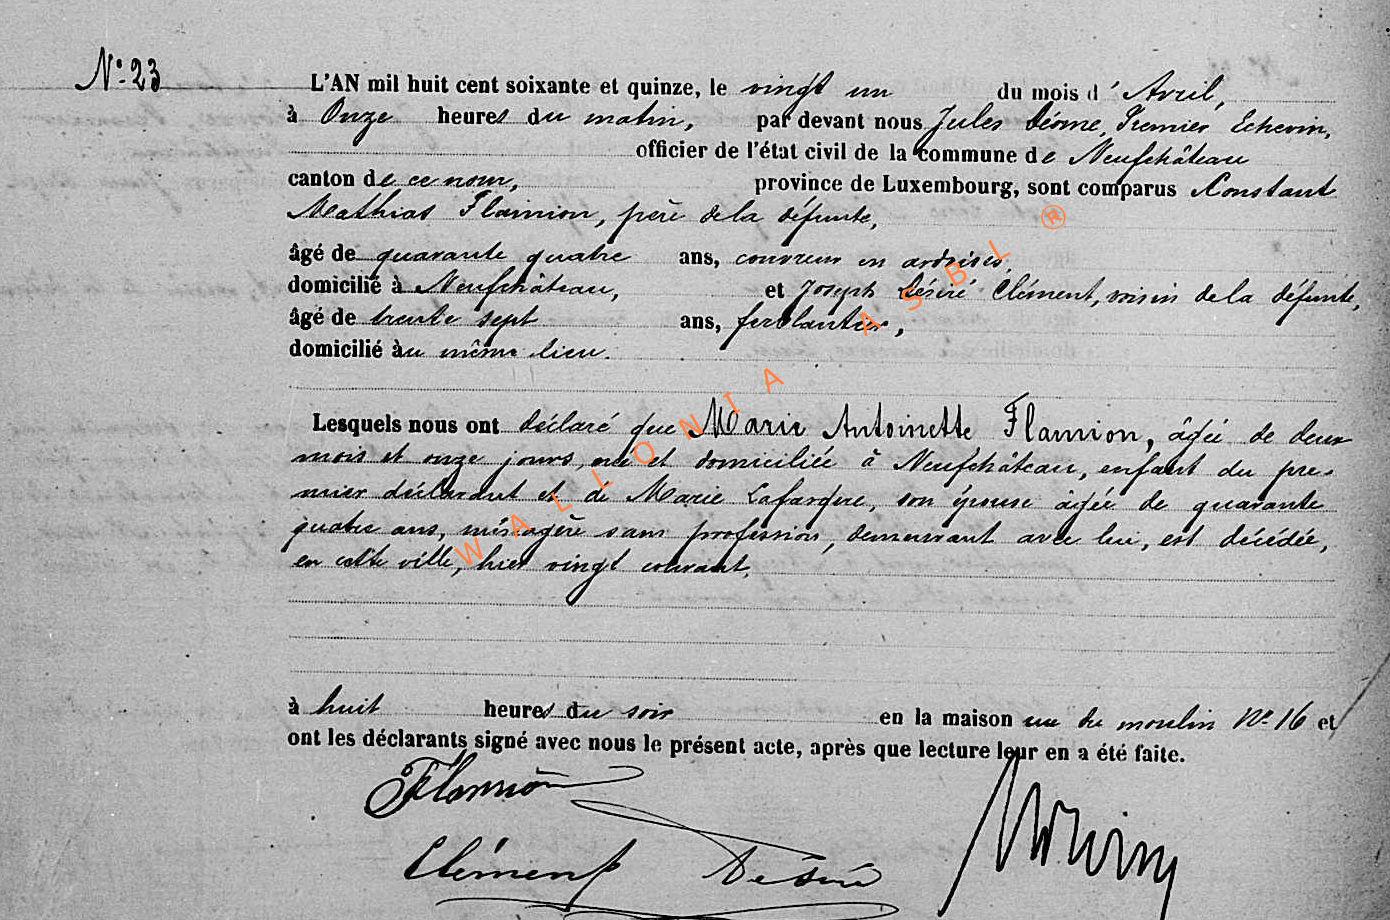 N° 23
L'AN mil huit cent soixante et quinze, le vingt un du mois d'Avril,
à Onze heures du matin, par devant nous Jules Premier Echevin,
officier de l'état civil de la commune de Neufchâteau
canton de ce nom, province de Luxembourg, sont comparus Constant
Mathias Flamion, père de la défunte,
âgé de quarante quatre ans, couvreur en ardoises,
domicilié à Neufchâteau, et Joseph Désiré Clément, voisin de la défunte,
âgé de trente sept ans, ferblantier,
domicilié au même lieu.
Lesquels nous ont déclaré que Marie Antoinette Flamion, âgée de deux
mois et onze jours, née et domiciliée à Neufchâteau, enfant du pre-
mier déclarant et de Marie Lafargue, son épouse âgée de quarante
quatre ans, ménagère sans profession, demeurant avec lui, est décédée,
en cette ville, hier vingt courant,
à huit heures du soir en la maison rue du moulin N° 16 et
ont les déclarants signé avec nous le présent acte, après que lecture leur en a été faite.
Flamion
Clément Désiré
WALLONIA ASBL ®